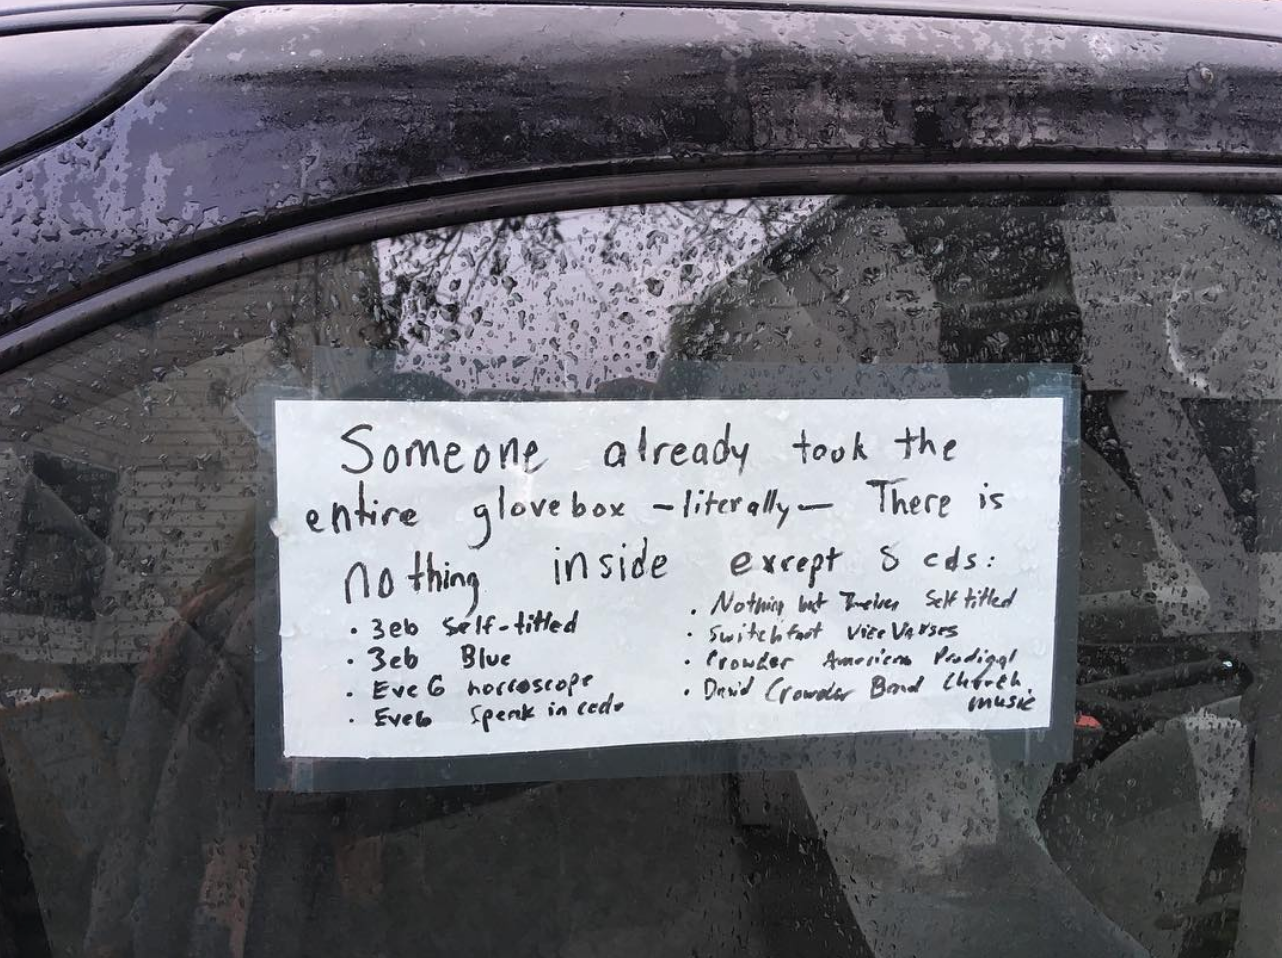 Someone already took the
entire glovebox -literally- There is
nothing inside except 8 cds:
• 3eb Self-titled
• 3eb Blue
• Eve 6 horroscope
• Eve6 Speak in code
• Nothing but Self titled
• Switchfoot Vice Verses
• Crowder American Prodigal
• David Crowder Band Church
music